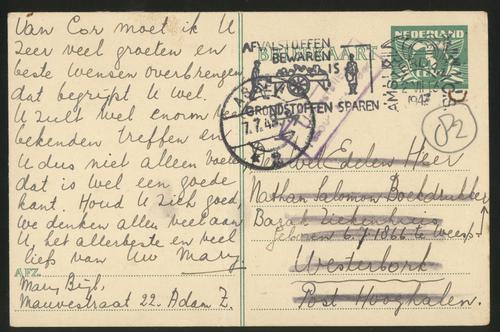 Van Cor moet ik U
zeer veel groeten en
beste wensen overbrengen
dat begrijpt U wel.
U zult wel enorm veel
bekenden treffen en
U dus niet alleen voelen
dat is wel een goede
kant. Houd U zich goed,
we denken allen veel aan
U, het allerbeste en veel
liefs van Uw Mary.
AFZ.
Mary Bijl,
Mauvestraat 22. Adam Z.
BRIEFKAART
NEDERLAND
AFVALSTOFFEN
BEWAREN
IS
GRONDSTOFFEN SPAREN
1943
7.7.43
Edelen Heer
Nathan Salomon Boekdrukker
Barak Ziekenhuis
Geboren 6.7.1866 te Weesp
Westerbork
Post Hooghalen.